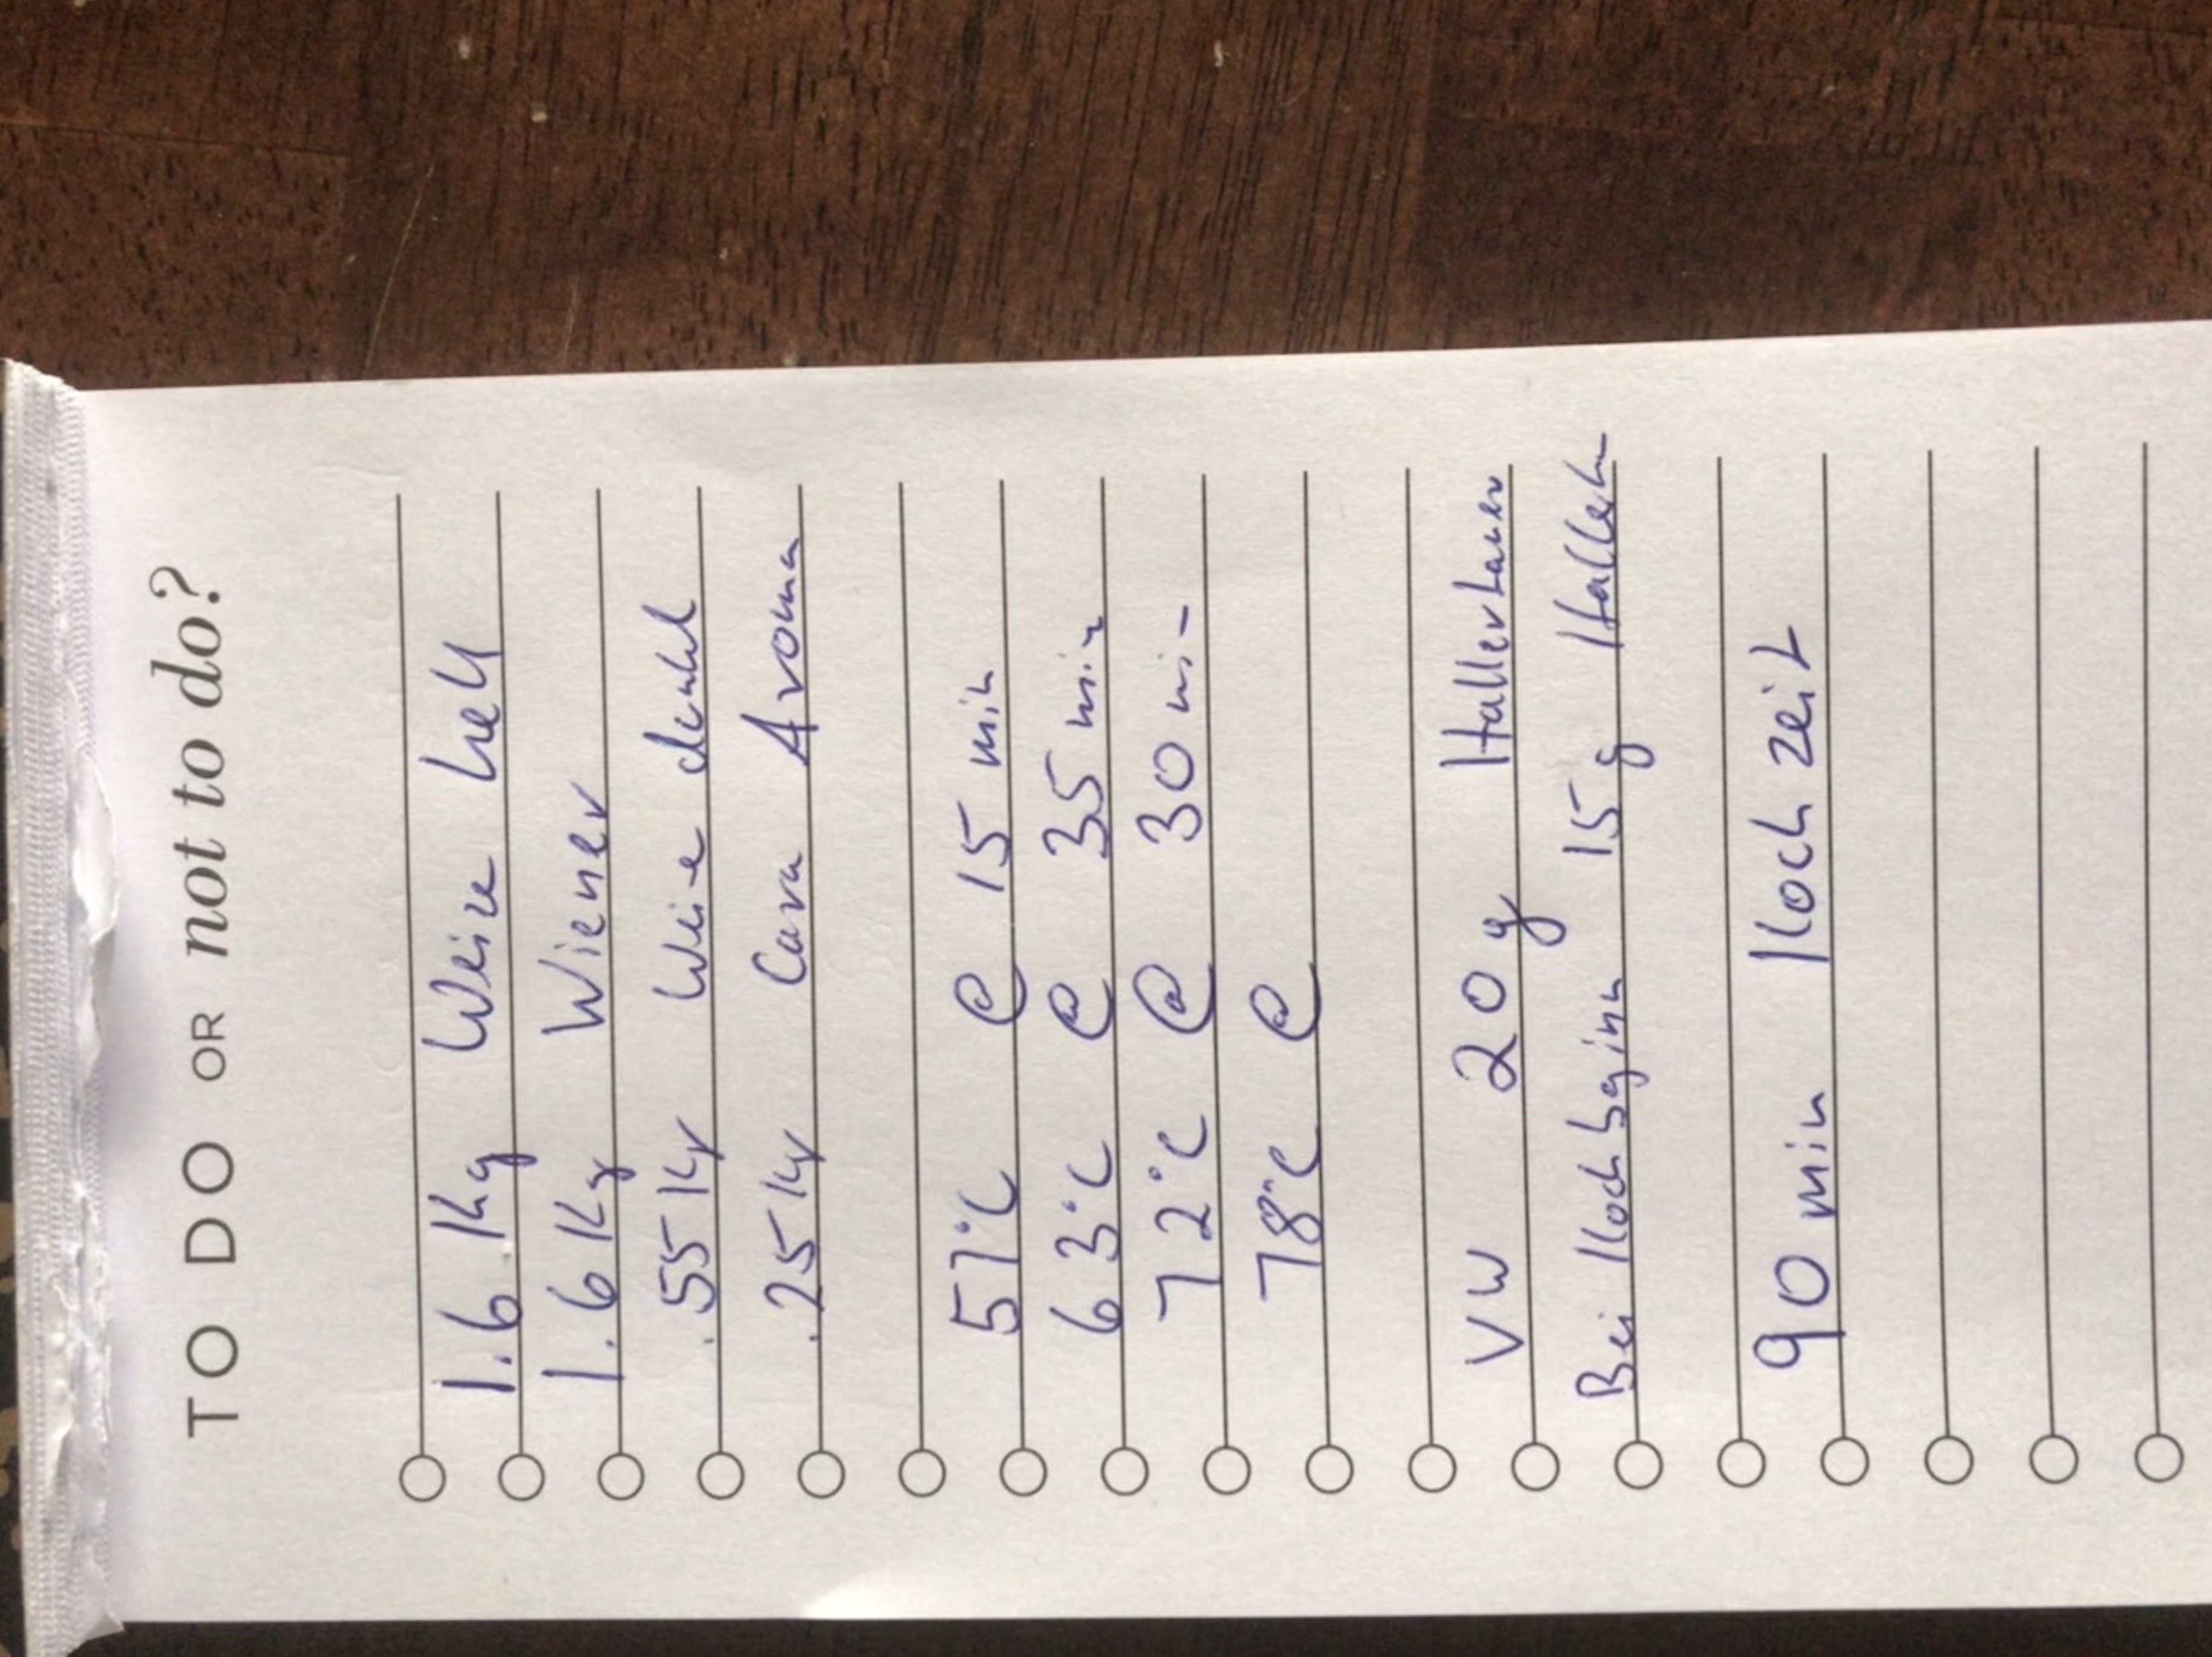 TO DO OR not to do?
1.6 Kg Weize hell
1.6 Kg Wiener
.55 Kg Weize dunkel
.25 Kg Cara Aroma
57°C @ 15 min
63°C @ 35 min
72°C @ 30 min
78°C @
VW 20g Hallertauer
Bei Kochbeginn 15g
90 min Kochzeit